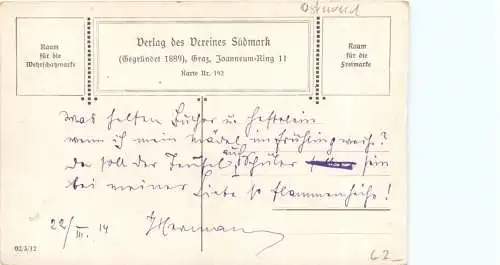 Ostmark
Raum
für die
Wehrschatzmarke
Verlag des Vereines Südmark
(Gegründet 1889), Graz, Joanneum-Ring 11
Karte Nr. 192
Raum
für die
Freimarke
Was helfen Bücher u. Heftelein
wenn ich mein Mädel im Frühling weiß?
da soll der Teufel auch Schüler sein
bei meiner Liebe so flammenheiß!
22/III. 14 Hermann
02/3/12
62-